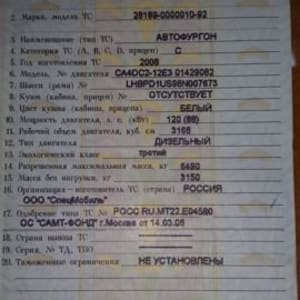 2. Марка, модель ТС 28189-0000010-92
3. Наименование (тип ТС) АВТОФУРГОН
4. Категория ТС (A, B, C, D, прицеп) C
5. Год изготовления ТС 2008
6. Модель, № двигателя CA4DC2-12E3 01429082
7. Шасси (рама) № LHBPD1US98N007673
8. Кузов (кабина, прицеп) № ОТСУТСТВУЕТ
9. Цвет кузова (кабины, прицепа) БЕЛЫЙ
10. Мощность двигателя, л. с. (кВт) 120 (88)
11. Рабочий объем двигателя, куб. см 3168
12. Тип двигателя ДИЗЕЛЬНЫЙ
13. Экологический класс третий
14. Разрешенная максимальная масса, кг 6490
15. Масса без нагрузки, кг 3150
16. Организация – изготовитель ТС (страна) РОССИЯ
ООО "СпецМобиль"
17. Одобрение типа ТС № РОСС RU.MT22.E04580
ОС "САМТ-ФОНД" г.Москва от 14.03.08
18. Страна вывоза ТС
19. Серия, № ТД, ТПО
20. Таможенные ограничения НЕ УСТАНОВЛЕНЫ